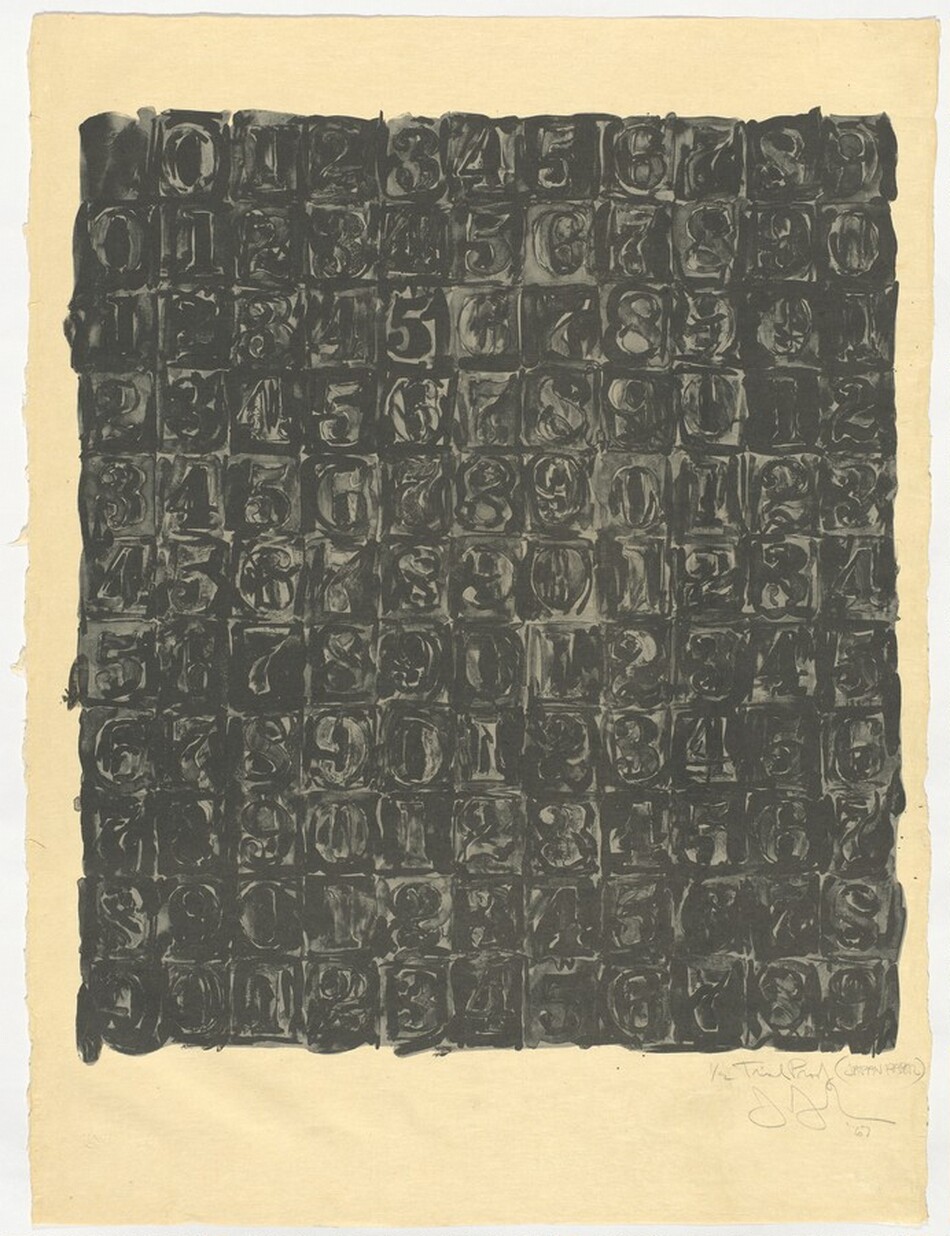 0 1 2 3 4 5 6 7 8 9
0 1 2 3 4 5 6 7 8 9 0
1 2 3 4 5 6 7 8 9 0 1
2 3 4 5 6 7 8 9 0 1 2
3 4 5 6 7 8 9 0 1 2 3
4 5 6 7 8 9 0 1 2 3 4
5 6 7 8 9 0 1 2 3 4 5
6 7 8 9 0 1 2 3 4 5 6
7 8 9 0 1 2 3 4 5 6 7
8 9 0 1 2 3 4 5 6 7 8
9 0 1 2 3 4 5 6 7 8 9
1/2 Trial Proof (JAPAN PAPER)
'67